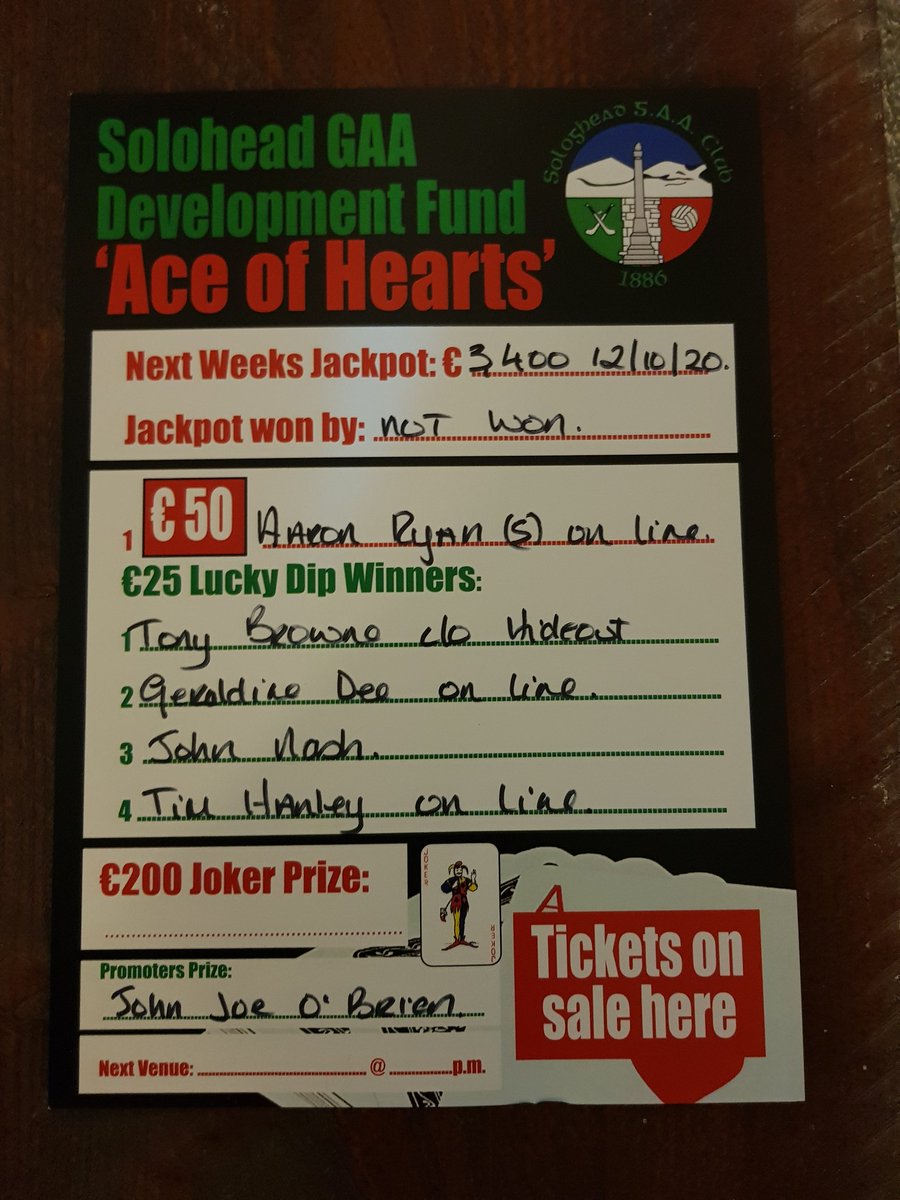 Solohead GAA
Development Fund
'Ace of Hearts'
Sologhead G.A.A. Club
1886
Next Weeks Jackpot: € 3,400 12/10/20.
Jackpot won by: NOT WON.
1 € 50 AARON RYAN (S) on line.
€25 Lucky Dip Winners:
1 Tony BROWNE c/o Hideout
2 Geraldine Dee on line.
3 John Nash.
4 Tim HANLEY on line.
€200 Joker Prize:
JOKER
JOKER
A
Tickets on
sale here
Promoters Prize:
John Joe O'Brien.
Next Venue: @ p.m.